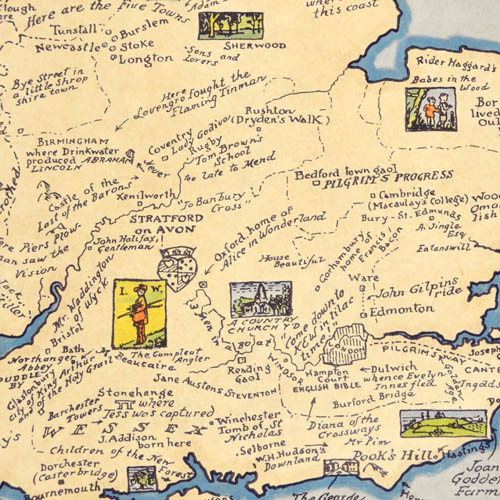 lough
Here are the Five Towns
Adam
where
this coast
Tunstall
Burslem
Newcastle
Stoke
Longton
SHERWOOD
"Sons and
Lovers"
Rider Haggard's
Babes in the
Wood
Bye Street in
a little Shrop
shire town
Here fought the
Lavengro
Flaming Tinman
Rushton
(Dryden's Walk)
Bor
lived
Oul
BIRMINGHAM
where Drinkwater
produced ABRAHAM
LINCOLN
Coventry
Lady Godiva
Rugby
Tom Brown's
School
Never
too late to Mend
Bedford Town gaol
PILGRIM'S PROGRESS
Castle of the
Last of the Barons
Kenilworth
"To Banbury
Cross"
Cambridge
(Macaulays College)
Bury-St. Edmunds
A. Jingle
Esq
Eatanswill
STRATFORD
on AVON
John Halifax
Gentleman
Piers Plow-
man saw the
Vision
Oxford home of
Alice in Wonderland
House
Beautiful
Gorhambury
home of
Francis
Bacon
Ware
John Gilpins
ride
Edmonton
Mr. Waddington
of Wyck
I. W.
A COUNTRY
CHURCHY
3 Men in
Come down to
Kew in lilac
time
Bristol
Bath
Northanger
Abbey
Beaucaire
The Compleat
Angler
Reading
Gaol
WINDSOR
Hampton
Court
ENGLISH BIBLE
Dulwich
whence Evelyn
Innes fled
PILGRIMS WAY
Joseph
Glastonbury
only of King Arthur
and of the Holy Grant
Jane Austens STEVENTON
Burford Bridge
Barchester
Towers
Stonehenge
where
Tess was captured
WESSEX
J. Addison
born here
Winchester
Tomb of St
Nicholas
Selborne
Diana of the
Crossways
Mr Pim
Children of the New
Forest
W.H. Hudson's
Downland
POOK'S Hill
Hastings
Dorchester
(Casterbridge)
Bournemouth
The George
Joan
Godden
Farm